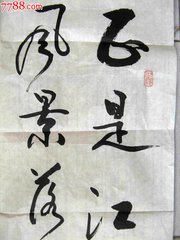 7788.com
正是江
风景落